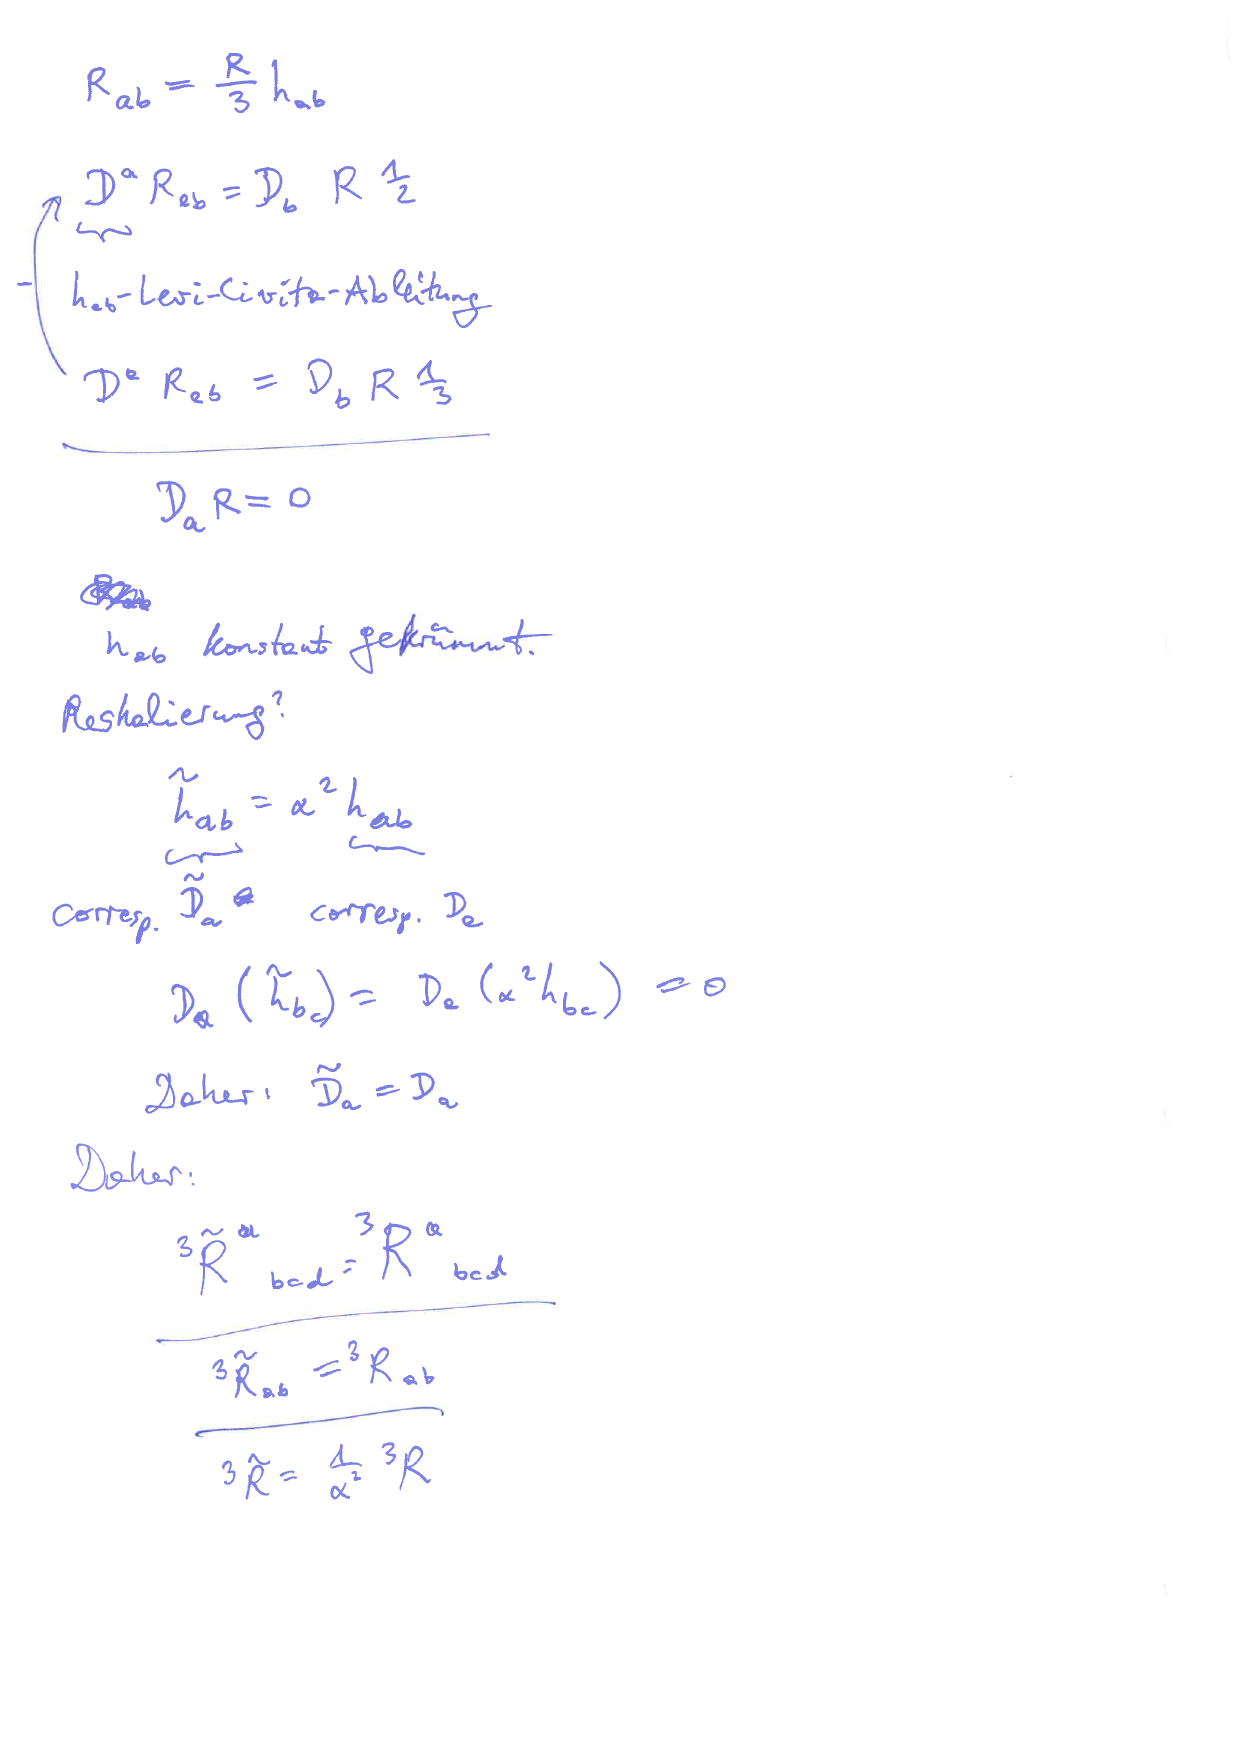 R_ab = R/3 h_ab
D^a R_ab = D_b R 1/2
h_ab-Levi-Civita-Ableitung
-
D^a R_ab = D_b R 1/3
D_a R = 0
h_ab konstant gekrümmt.
Reskalierung?
h̃_ab = α² h_ab
corresp. D̃_a corresp. D_a
D_a (h̃_bc) = D_a (α² h_bc) = 0
Daher: D̃_a = D_a
Daher:
³R̃^a_bcd = ³R^a_bcd
³R̃_ab = ³R_ab
³R̃ = 1/α² ³R